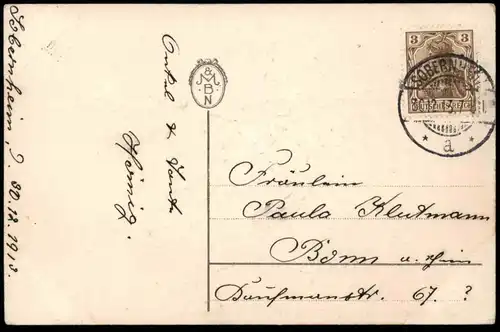 Sobernheim, D. 30.12.1913.
Onkel & Tante
Hornig.
M&M
BN
3
SOBERNHEIM
a
Fräulein
Paula Klutmann
Bonn a. rhein
Kaufmanstr. 67. ?